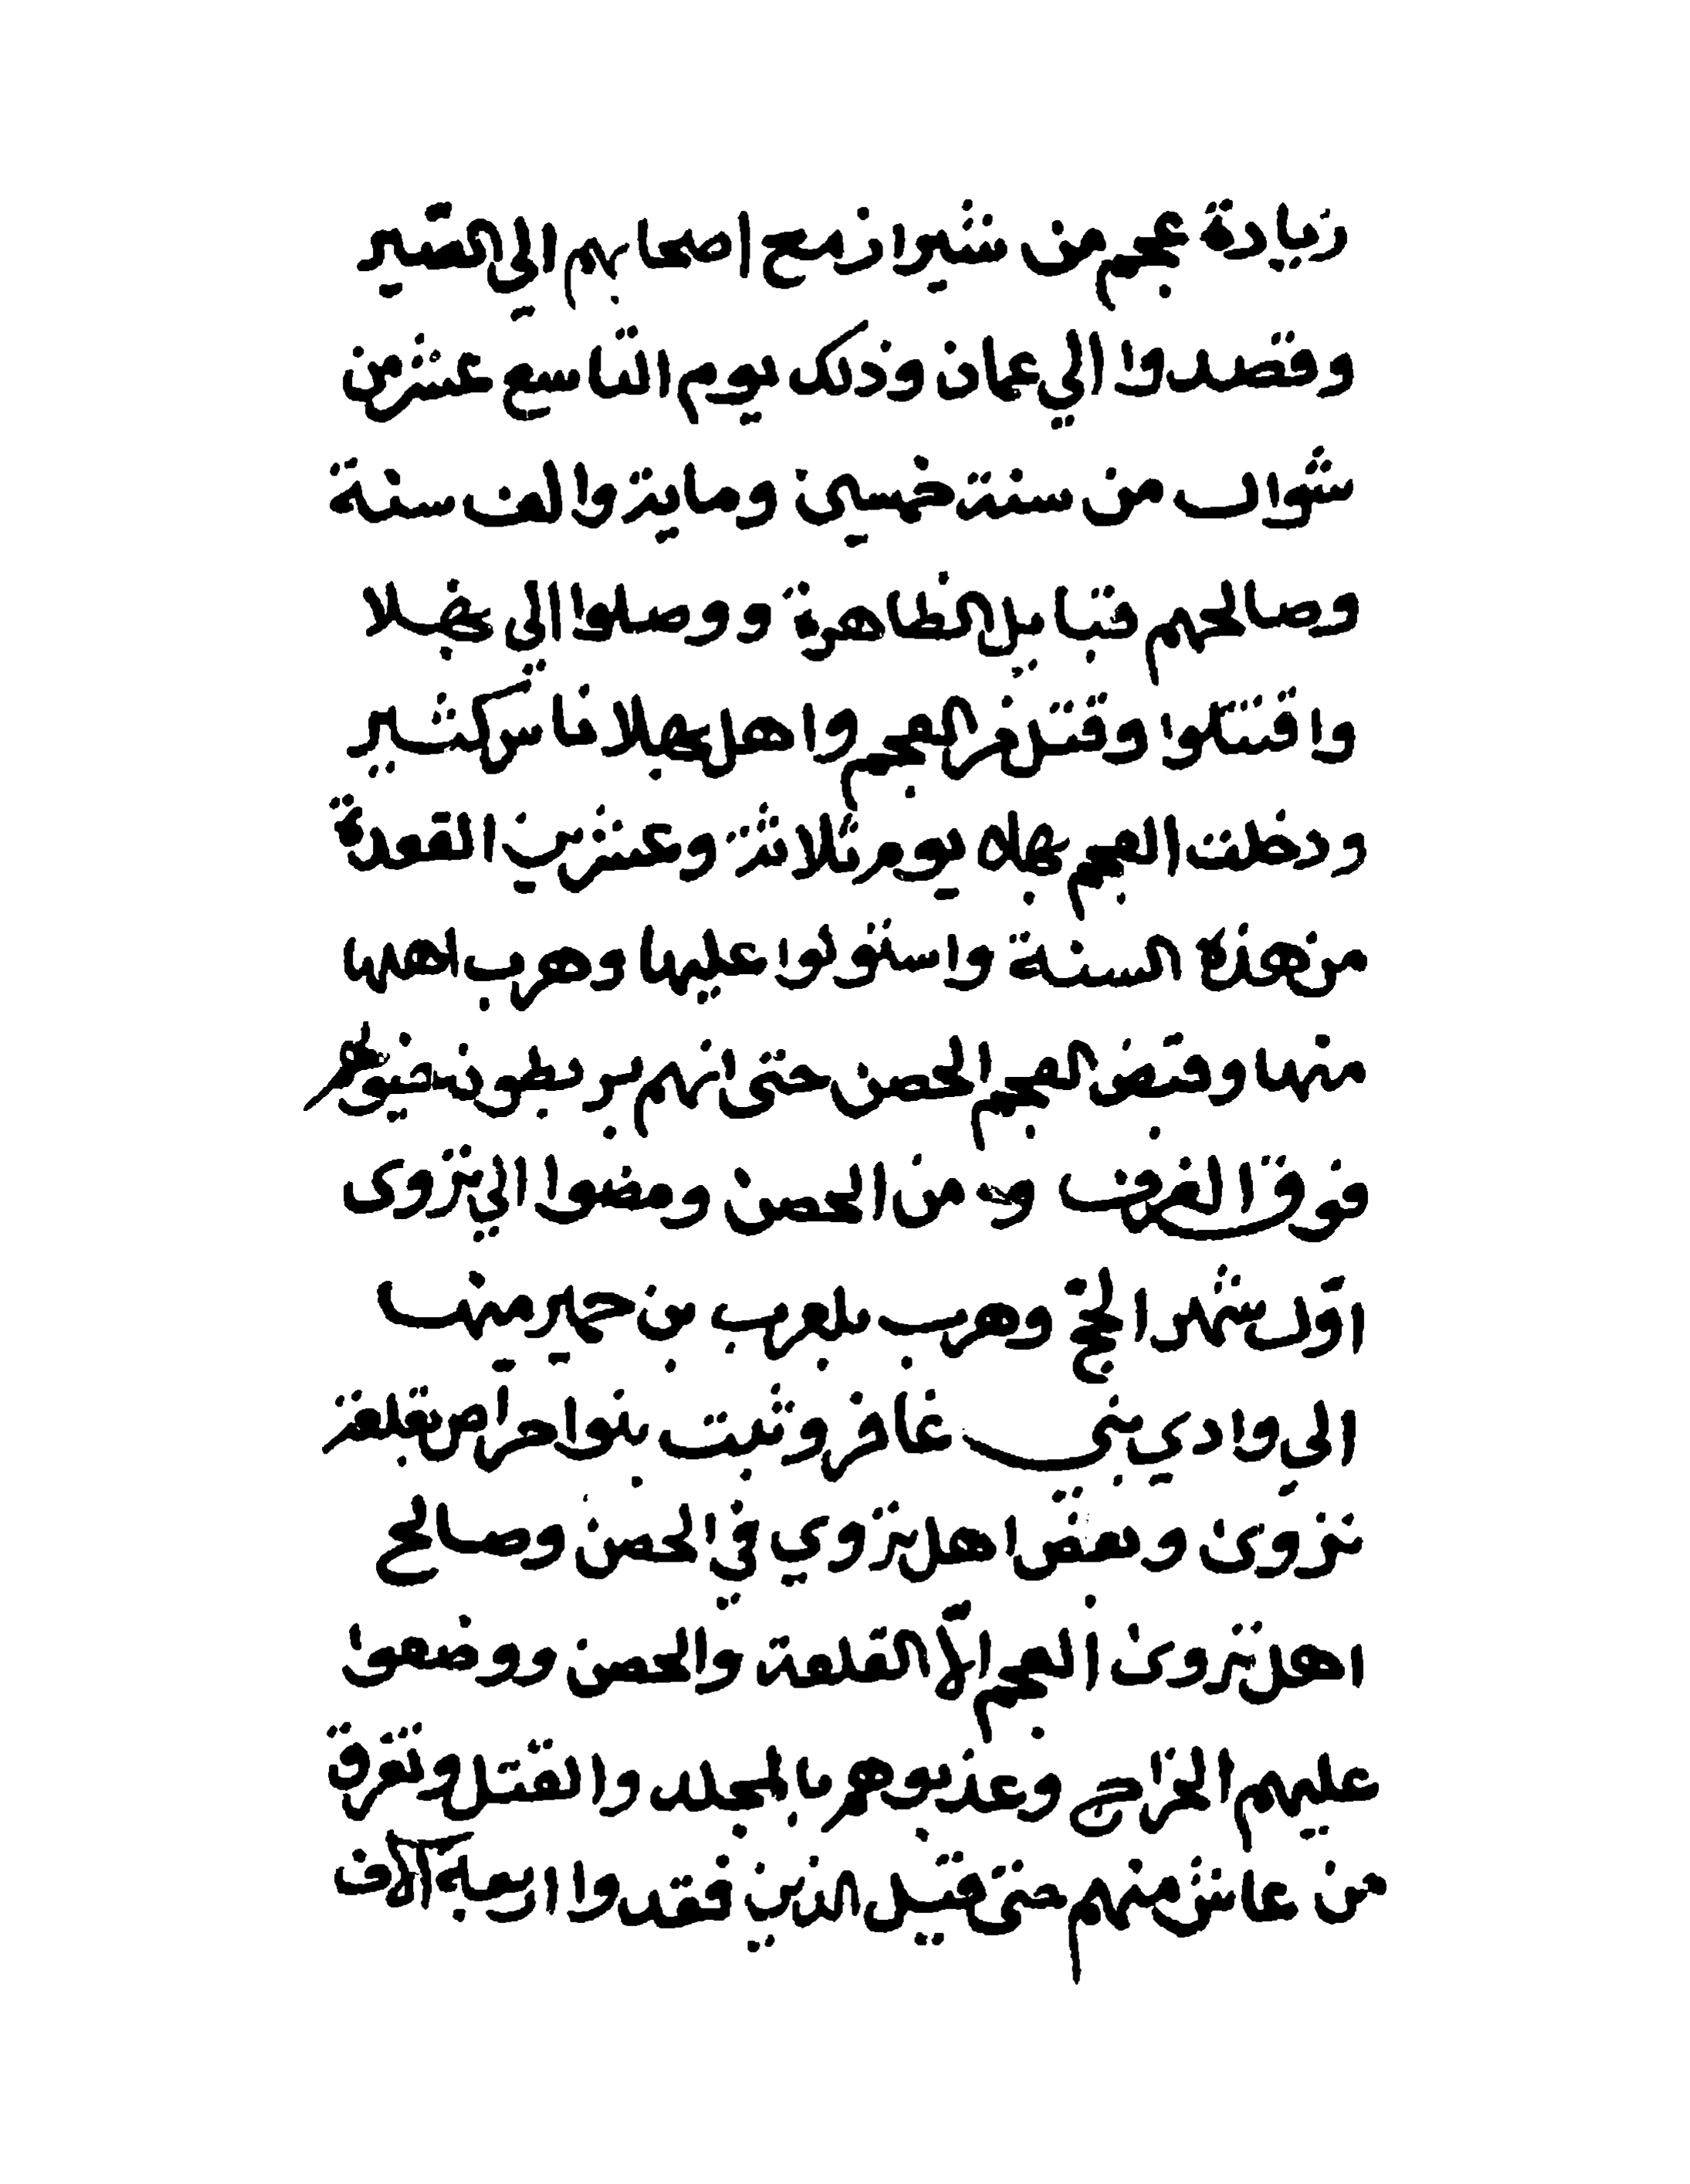 زيادة عجم من شيراز مع اصحابهم الي الصير
وقصدوا الي عمان وذلك يوم التاسع عشر من
شوال من سنة خمسين وماية والف سنة
وصالحهم قبايل الظاهرة ووصلوا الي بهلا
واقتتلوا وقتل من العجم واهل بهلا ناس كثير
ودخلت العجم بهلا يوم ثلاثة وعشرين القعدة
من هذه السنة واستولوا عليها وهرب اهلها
منها وقبض العجم الحصن حتى انهم يربطون خيولهم
فوق الغرف من الحصن ومضوا الي نزوى
اوّل شهر الحج وهرب بلعرب بن حمير منها
الى وادي بني غافر وثبت بنوا حراص بقلعة
نزوى وبعض اهل نزوي في الحصن وصالح
اهل نزوى العجم الّا القلعة والحصن ووضعوا
عليهم الخراج وعذبوهم بالجلد والقتل وتفرق
من عاش منهم حتى قيل الذين فقدوا اربعة آلاف